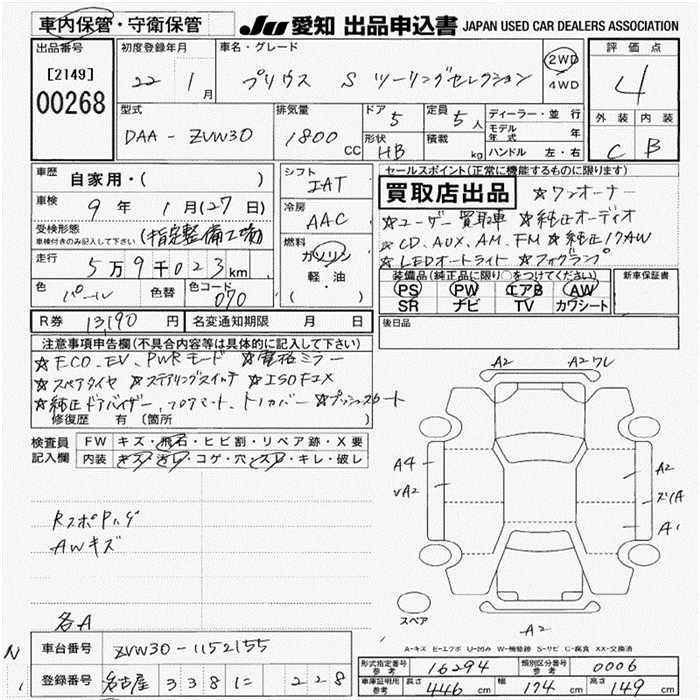 車内保管・守衛保管 JU 愛知 出品申込書 JAPAN USED CAR DEALERS ASSOCIATION
出品番号 初度登録年月 車名・グレード 評価点
[2149] 22 1月 プリウス S ツーリングセレクション 2WD 4
00268 4WD
型式 排気量 ドア 5 定員 5人 ディーラー・並行 外装 内装
DAA-ZVW30 1800CC 形状 HB 積載 kg モデル年式 年 C B
ハンドル 左・右
車歴 自家用・( ) シフト セールスポイント(正常に機能するものに限ります)
IAT 買取店出品 ☆ワンオーナー
車検 9年 1月(27日) 冷房 ☆ユーザー買取車 ☆純正オーディオ
受検形態 AAC ☆CD、AUX、AM、FM ☆純正17AW
車検付きのみ記入して下さい (指定整備工場) 燃料 ☆LEDオートライト ☆フォグランプ
走行 5万9千023km ガソリン 装備品(純正品に限り○をつけてください) 新車保証書
軽・油 PS PW エアB AW
色 パール 色替 色コード 070 ( ) SR ナビ TV カワシート
R券 13190円 名変通知期限 月 日 後日品
注意事項申告欄(不具合内容等は具体的に記入して下さい)
☆ECO、EV、PWRモード ☆電格ミラー
☆スペアタイヤ ☆ステアリングスイッチ ☆ISOFIX
☆純正ドアバイザー、フロアマット、トノカバー ☆プッシュスタート
修復歴 有 (箇所 )
検査員 FW キズ・飛石・ヒビ割・リペア跡・X要
記入欄 内装 キズ・汚レ・コゲ・穴・スレ・キレ・破レ
A2 A2ワレ
A4 A2
√A2 ズレA
A1
RスポPハゲ
AWキズ
スペア
各A
A2
A-キズ E-エクボ U-凹み W-補修跡 S-サビ C-腐食 XX-交換済
車台番号 ZVW30-1152155
登録番号 名古屋 338 に 228
形式指定番号 参考 16294 類別区分番号 参考 0006
車庫証明用 参考 長さ 446cm 幅 174cm 高さ 149cm